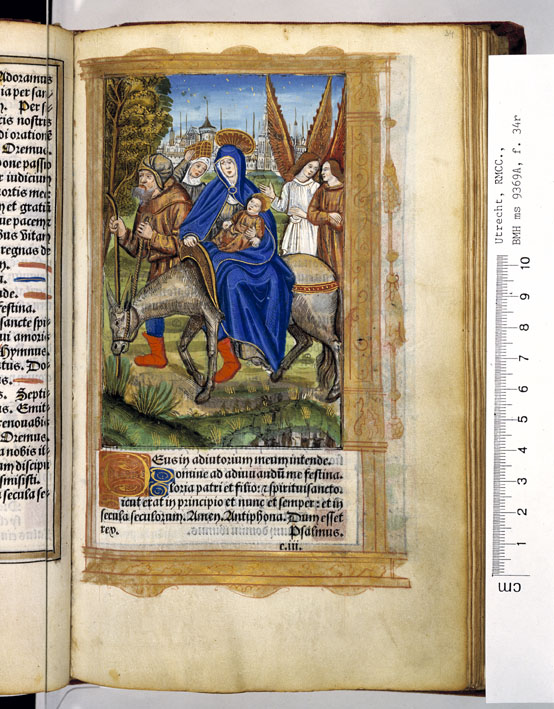 Adoramus
ia per san
. Per s
ris nostris
di oratione
Oremus.
pone passio
r iudicium
mortis mee
et gratiā
que pacem
bus vitam
regnas de
nde.
festina.
sancte spi
ui amoris
Hymnus.
ctus. Do
s. Septi
us. Emit
renouabis
Oremus.
a nobis il
um discipu
smisisti.
a secula se
34
Deus in adiutorium meum intende.
Domine ad adiuvandū me festina.
Gloria patri et filio: et spiritui sancto
sicut erat in principio et nunc et semper: et in
secula seculorum. Amen. Antiphona. Dum esset
rex. Psalmus.
e.iii.
Utrecht, RMCC.,
BMH ms 9369A, f. 34r
10
9
8
7
6
5
4
3
2
1
cm